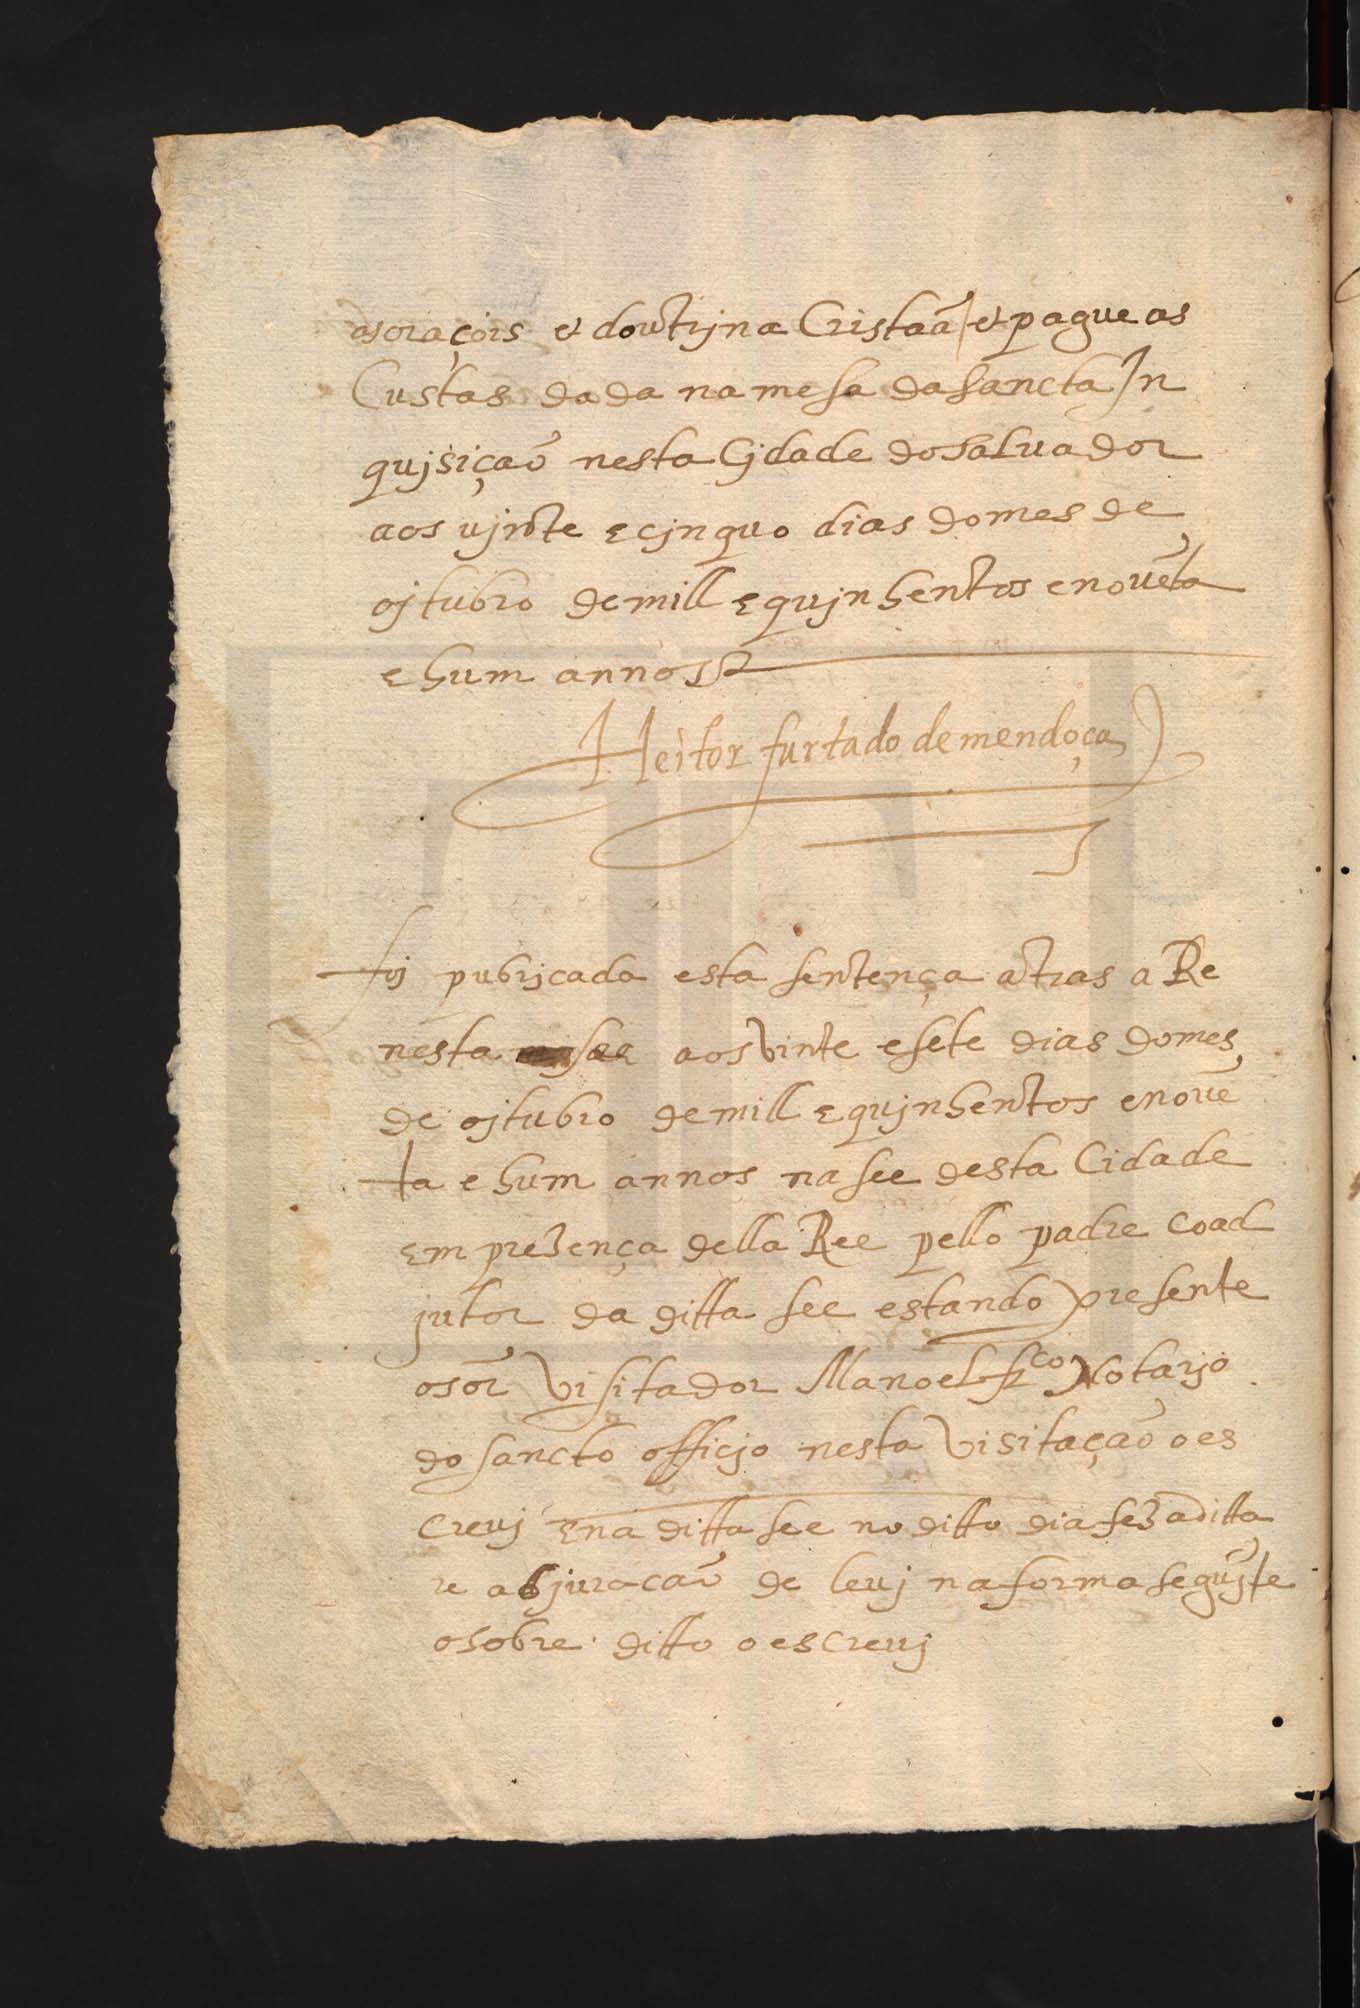 as oraçois & doutrjna Cristaã / & pague as
Custas dada na mesa da sancta In
qujsiçaõ nesta Cjdade do saluador
aos ujnte e cjnquo dias do mes de
ojtubro de mill e qujnhentos e nouẽta
e hum annos
Heitor furtado de mendoça
foj pubrjcada esta sentença atras a Re
nesta aos vinte e sete dias do mes
de ojtubro de mill e qujnhentos e nouẽ
ta e hum annos na see desta Cidade
em presença della Ree pello padre coad
jutor da ditta see estando presente
o sõr visitador Manoel frco Notarjo
do sancto officjo nesta visitaçaõ o es
creuj e na ditta see no ditto dia fez a ditta
re abjuracaõ de leuj na forma segũjte
o sobre ditto o escreuj